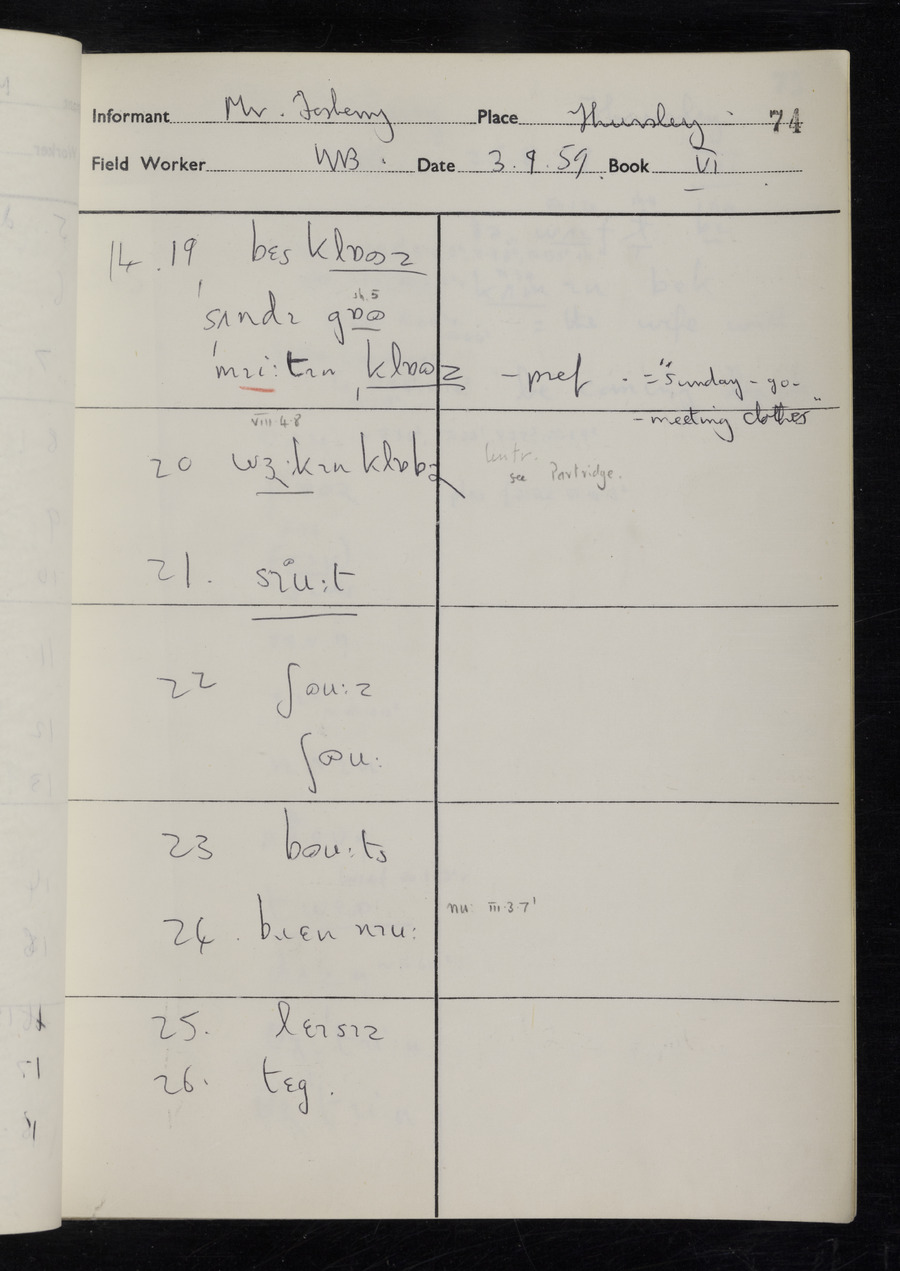 Informant Mr. Fosberry Place Thursley 74
Field Worker WB. Date 3.9.59. Book VI
14.19 bɛs klɒʊz
sʌndɪ gɒʊ
sh.5
ˈmɪi:tɪn ˌklɒʊz – pref. = "Sunday-go-
-meeting clothes"
VIII.4.8
20 wɜ:kɪn klɒbz
see Partridge.
21. sɪu:t
22 ʃəu:z
ʃəu:
23 bəu:ts
24. bɹɛn nɪu:
nu: III.3.7
25. lɛɪsɪz
26. tɛg.